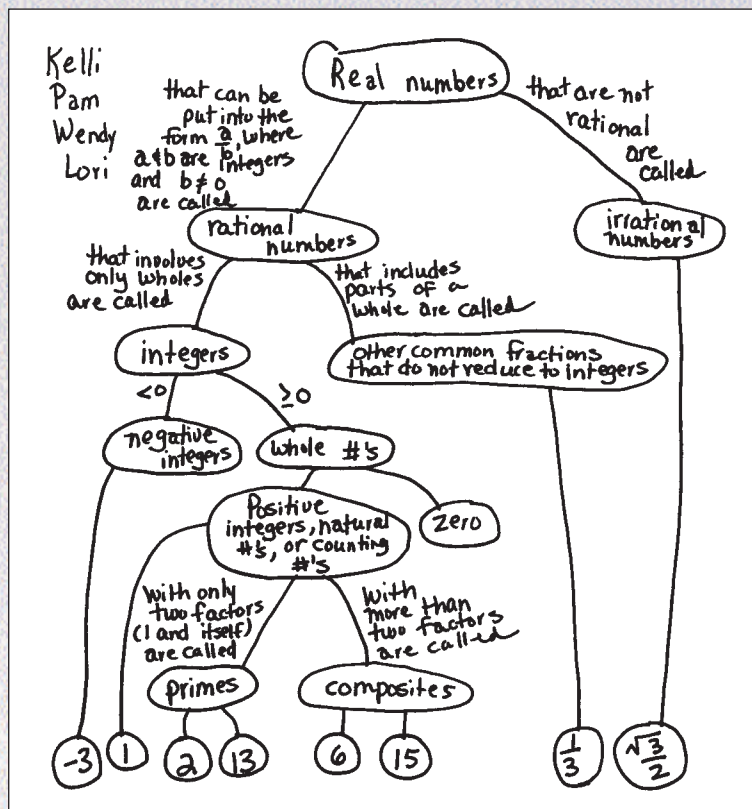 Kelli
Pam
Wendy
Lori
Real numbers
that can be
put into the
form a/b, where
a & b are integers
and b ≠ 0
are called
that are not
rational
are
called
rational
numbers
irrational
numbers
that involves
only wholes
are called
that includes
parts of a
whole are called
integers
other common fractions
that do not reduce to integers
<0
≥0
negative
integers
whole #'s
Positive
integers, natural
#'s, or counting
#'s
zero
with only
two factors
(1 and itself)
are called
with
more than
two factors
are called
primes
composites
-3
1
2
13
6
15
1/3
√3/2